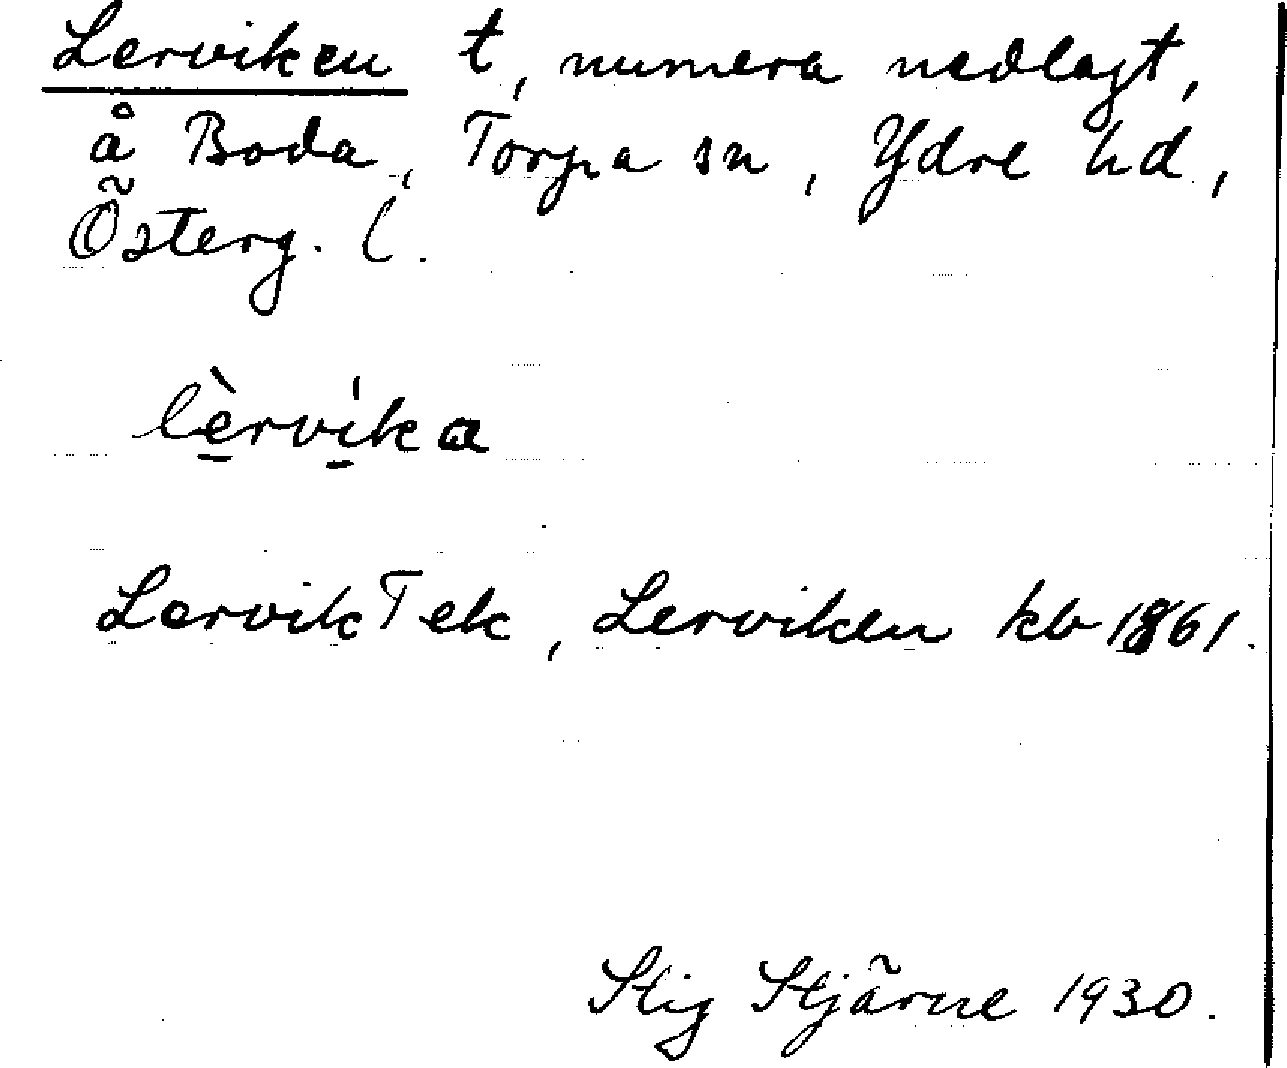 Lerviken t, numera nedlagt,
å Boda, Torpa sn, Ydre hd,
Österg. l.
lèrvíka
Lervik Tek, Lerviken kb 1861.
Stig Stjärne 1930.